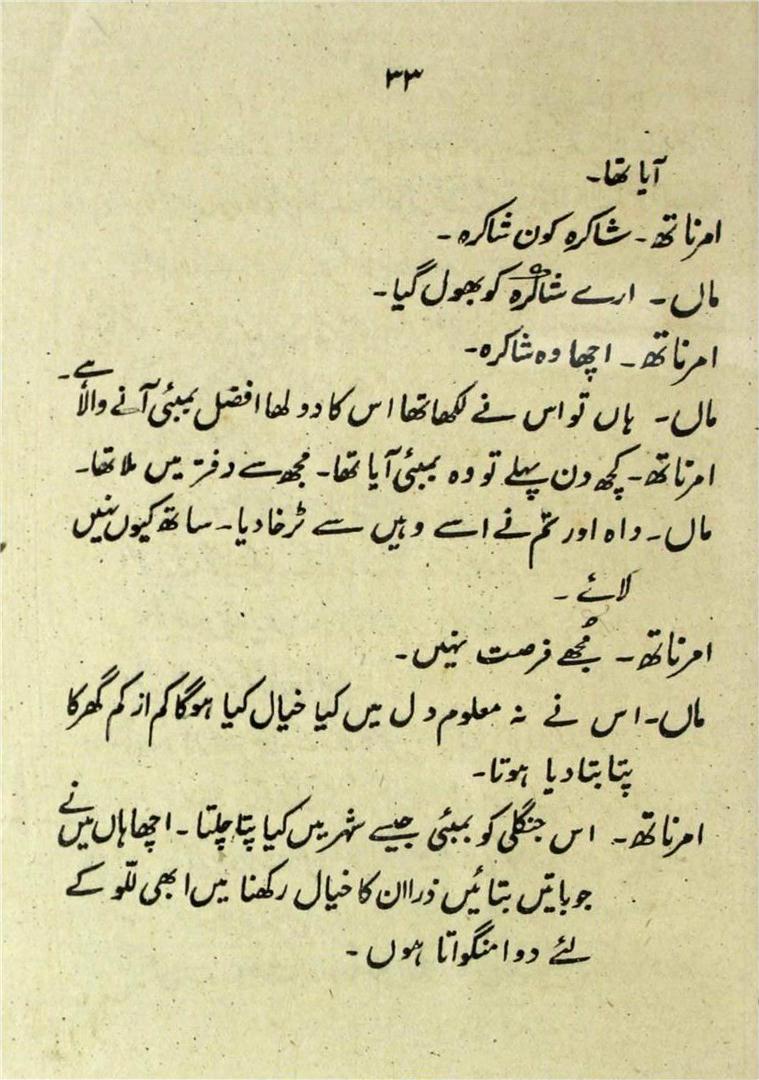 ۳۳
آیا تھا۔
امرناتھ۔ شاکرہ کون شاکرہ۔
ماں۔ ارے شاکرہ کو بھول گیا۔
امرناتھ۔ اچھا وہ شاکرہ۔
ماں۔ ہاں تو اس نے لکھا تھا اس کا دولھا افضل بمبئی آنے والا ہے۔
امرناتھ۔ کچھ دن پہلے تو وہ بمبئی آیا تھا۔ مجھ سے دفتر میں ملا تھا۔
ماں۔ واہ اور تم نے اسے وہیں سے ٹرخا دیا۔ ساتھ کیوں نہیں
لائے۔
امرناتھ۔ مُجھے فرصت نہیں۔
ماں۔ اس نے نہ معلوم دل میں کیا خیال کیا ہوگا کم از کم گھر کا
پتا بتا دیا ہوتا۔
امرناتھ۔ اس جنگلی کو بمبئی جیسے شہر میں کیا پتا چلتا۔ اچھا ہاں میں نے
جو باتیں بتائیں ذرا ان کا خیال رکھنا میں ابھی للّو کے
لئے دوا منگواتا ہوں۔